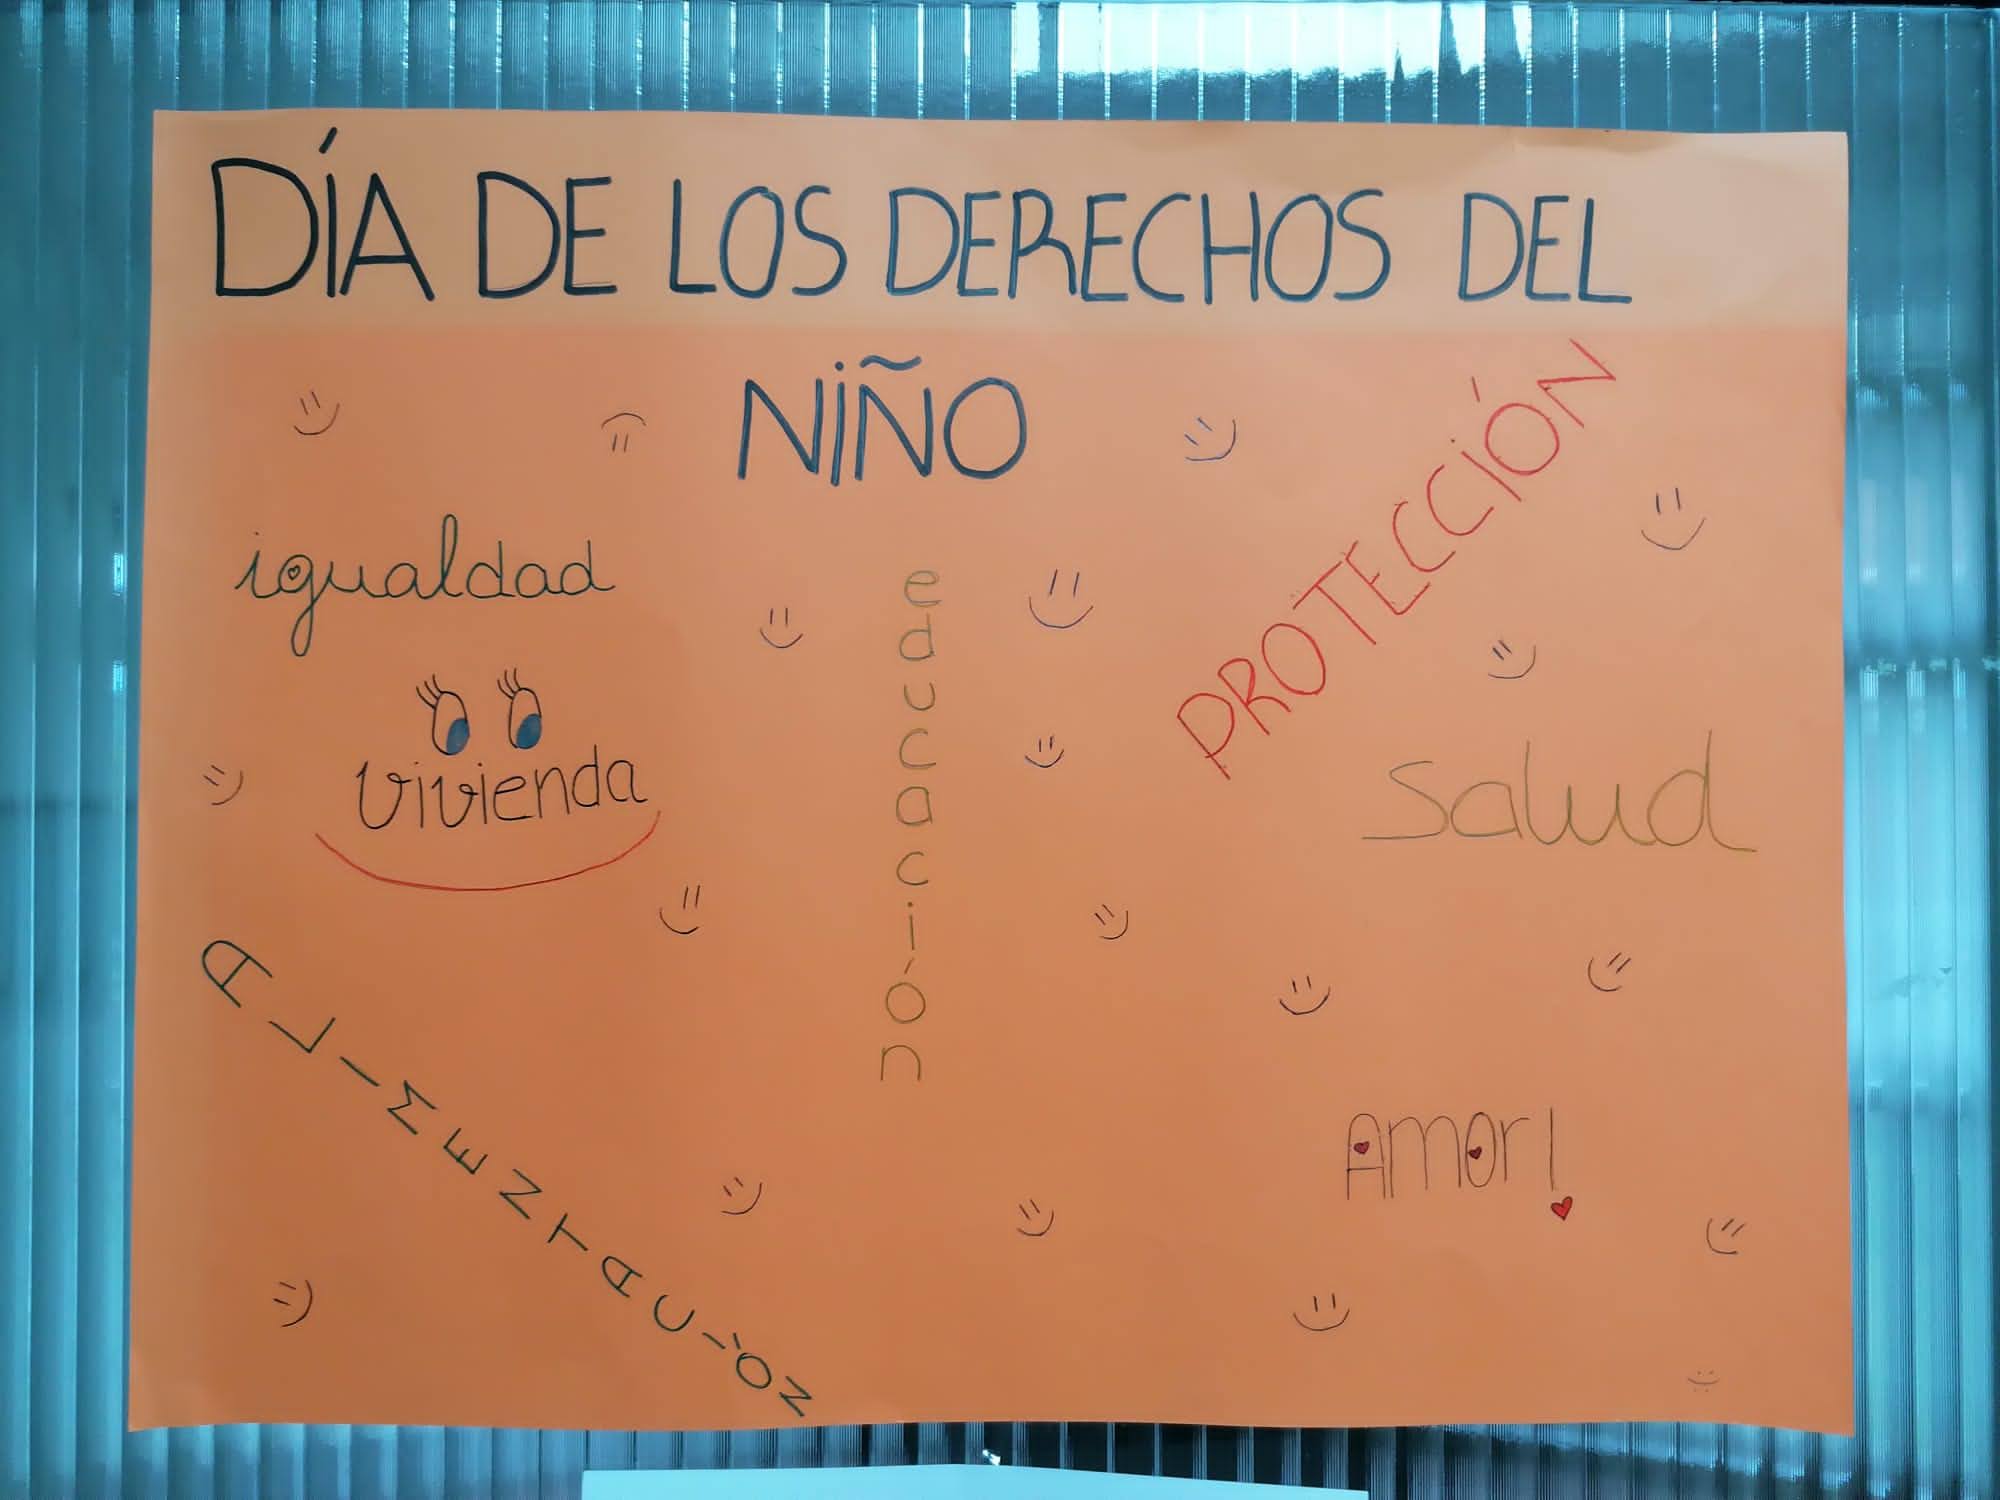 DÍA DE LOS DERECHOS DEL
NIÑO
PROTECCIÓN
igualdad
educación
vivienda
salud
ALIMENTACIÓN
Amor!